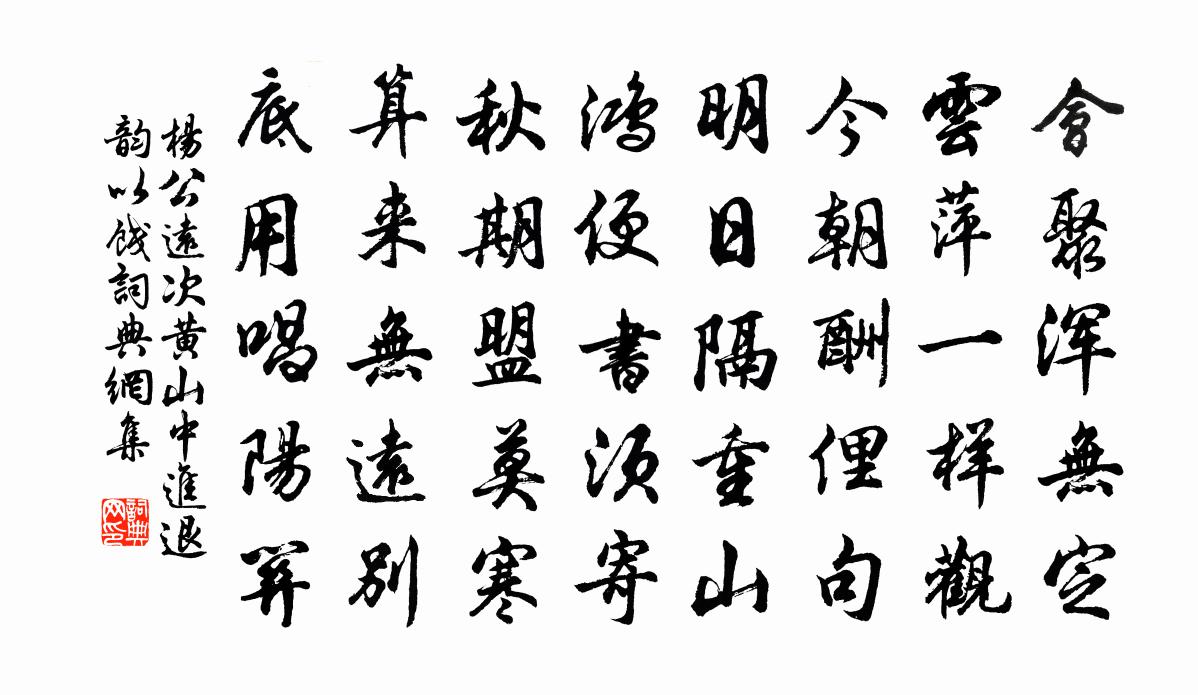 會聚浑無定
雲萍一样觀
今朝酬俚句
明日隔重山
鸿便書須寄
秋期盟莫寒
算来無遠別
底用唱陽関
楊公遠次黄山中進退
韵以餞詞典網集
詞典
网印